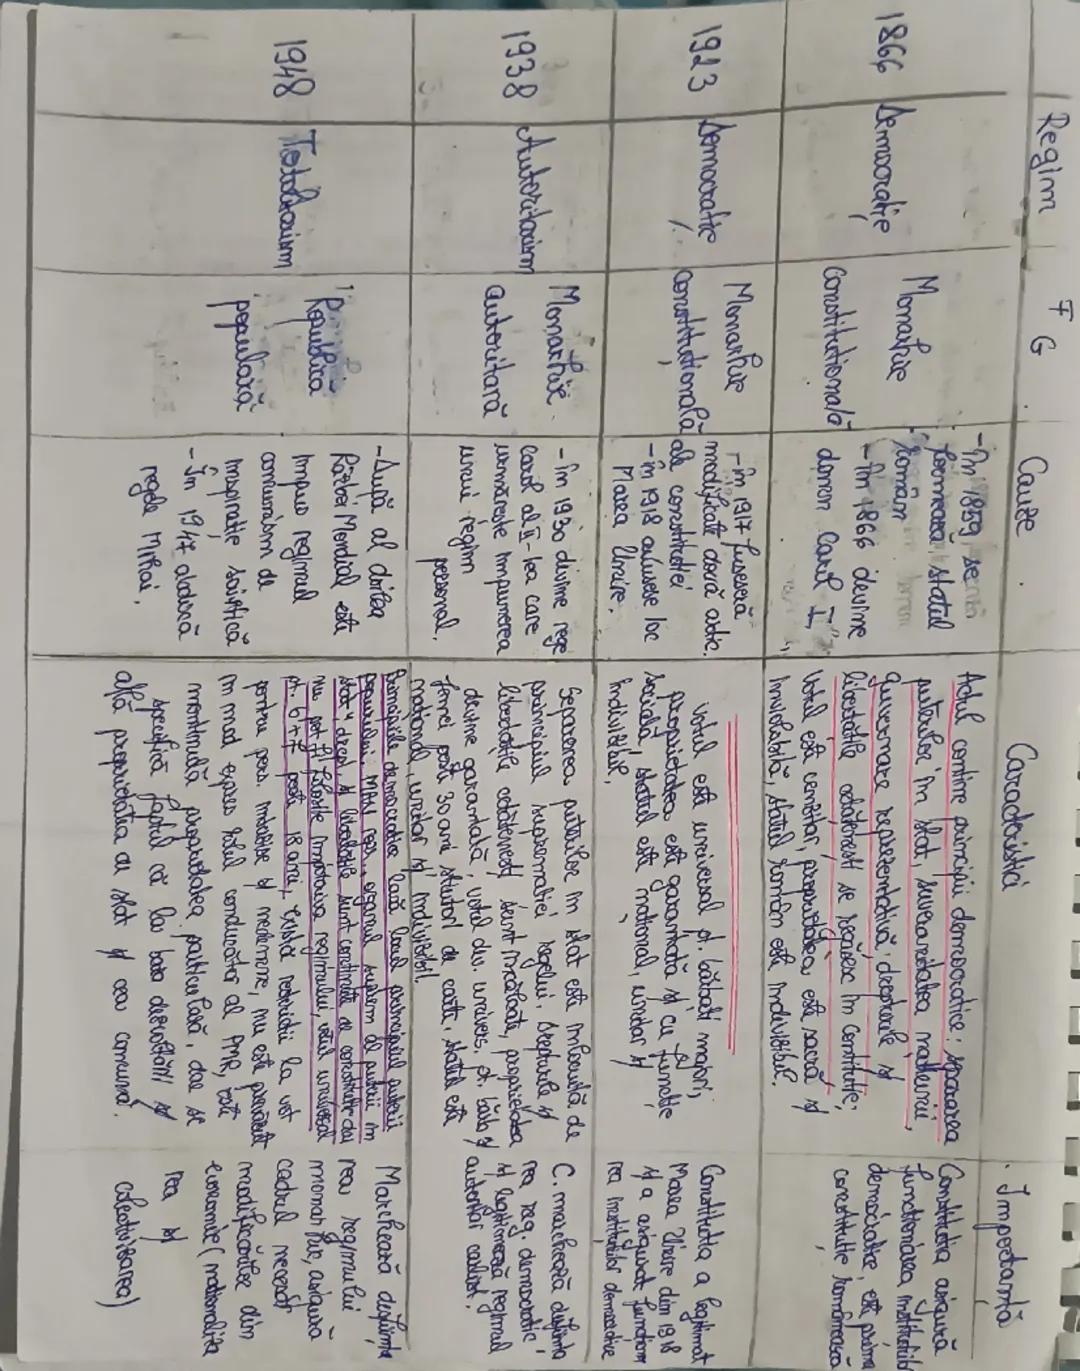 Regim
F G.
Cauze.
Caracteristici
Importanță
1866
Democrație
Monarhie
Constituțională
- În 1859 se
formează statul
român
- În 1866 devine
domn Carol I
Actul conține principii democratice: separarea
puterilor în stat, suveranitatea națiunii,
guvernare reprezentativă; drepturile și
libertățile cetățenești se regăsesc în constituție;
Votul este cenzitar, proprietatea este sacră și
inviolabilă, statul român este indivizibil.
Constituția asigură
funcționarea instituțiilor
democratice, este prima
constituție românească
1923
Democratie
Monarhie
constituțională
- în 1917 fuseseră
modificate două artic.
ale constituției
- în 1918 avusese loc
Marea Unire.
Votul este universal pt. bărbați majori;
proprietatea este garantată și cu funcție
socială, statul este național, unitar și
indivizibil.
Constituția a legitimat
Marea Unire din 1918
și a asigurat funcționa
rea instituțiilor democratice
1938
Autoritarism
Monarhie
autoritară
- în 1930 devine rege
Carol al II-lea care
urmărește impunerea
unui regim
personal.
Separarea puterilor în stat este înlocuită de
principiul supremației regelui. Drepturile și
libertățile cetățenești sunt încălcate, proprietatea
devine garantată, votul dv. univers. pt. bărb și
femei peste 30 ani știutori de carte, statul este
național, unitar și indivizibil.
C. marchează desființa
rea reg. democratic
și legitimează regimul
autoritar carlist.
1948
Totalitarism
Republică
populară
- După al doilea
Război Mondial este
impus regimul
comunism de
inspirație sovietică
- În 1947 abdică
regele Mihai.
Principiile democratice lasă locul principiul puterii
poporului. MAN repr. organul suprem al puterii în
stat", drept. și libertățile sunt conținute de constituție dar
nu pot fi folosite împotriva regimului, votul universal
pt. b+f peste 18 ani, există restricții la vot
pentru pers. interzise și nedemne, nu este prevăzut
în mod expres rolul conducător al PMR, este
menținută proprietatea particulară, dar se
specifică faptul că la baza dezvoltării
află proprietatea de stat și cea comună.
Marchează desființa
rea regimului
monarhic, asigură
cadrul necesar
modificărilor din
economie (naționaliza
rea și
colectivizarea)